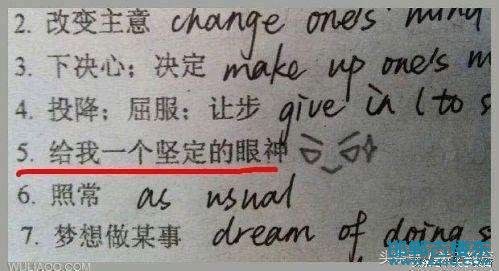 2. 改变主意 change one's mind
3. 下决心；决定 make up one's m
4. 投降；屈服；让步 give in (to s
5. 给我一个坚定的眼神
6. 照常 as usual
7. 梦想做某事 dream of doing s
WULWOO.COM